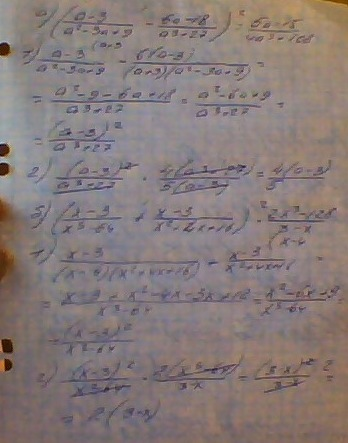 a) (a-3 / a²-3a+9 - 6a-18 / a³+27) : 5a-15 / 4a³+108
1) a-3 / a²-3a+9 (a+3 - 6(a-3) / (a+3)(a²-3a+9) =
= a²-9-6a+18 / a³+27 = a²-6a+9 / a³+27 =
= (a-3)² / a³+27
2) (a-3)² / a³+27 · 4(a³+27) / 5(a-3) = 4(a-3) / 5
б) (x-3 / x³-64 + x-3 / x²+4x+16) · 2x³-128 / 3-x
(x-4
1) x-3 / (x-4)(x²+4x+16) + x-3 / x²+4x+16 =
= x-3+x²-4x-3x+12 / x³-64 = x²-6x+9 / x³-64 =
= (x-3)² / x³-64
2) (x-3)² / x³-64 · 2(x³-64) / 3-x = (3-x)² 2 / 3-x =
= 2(3-x)